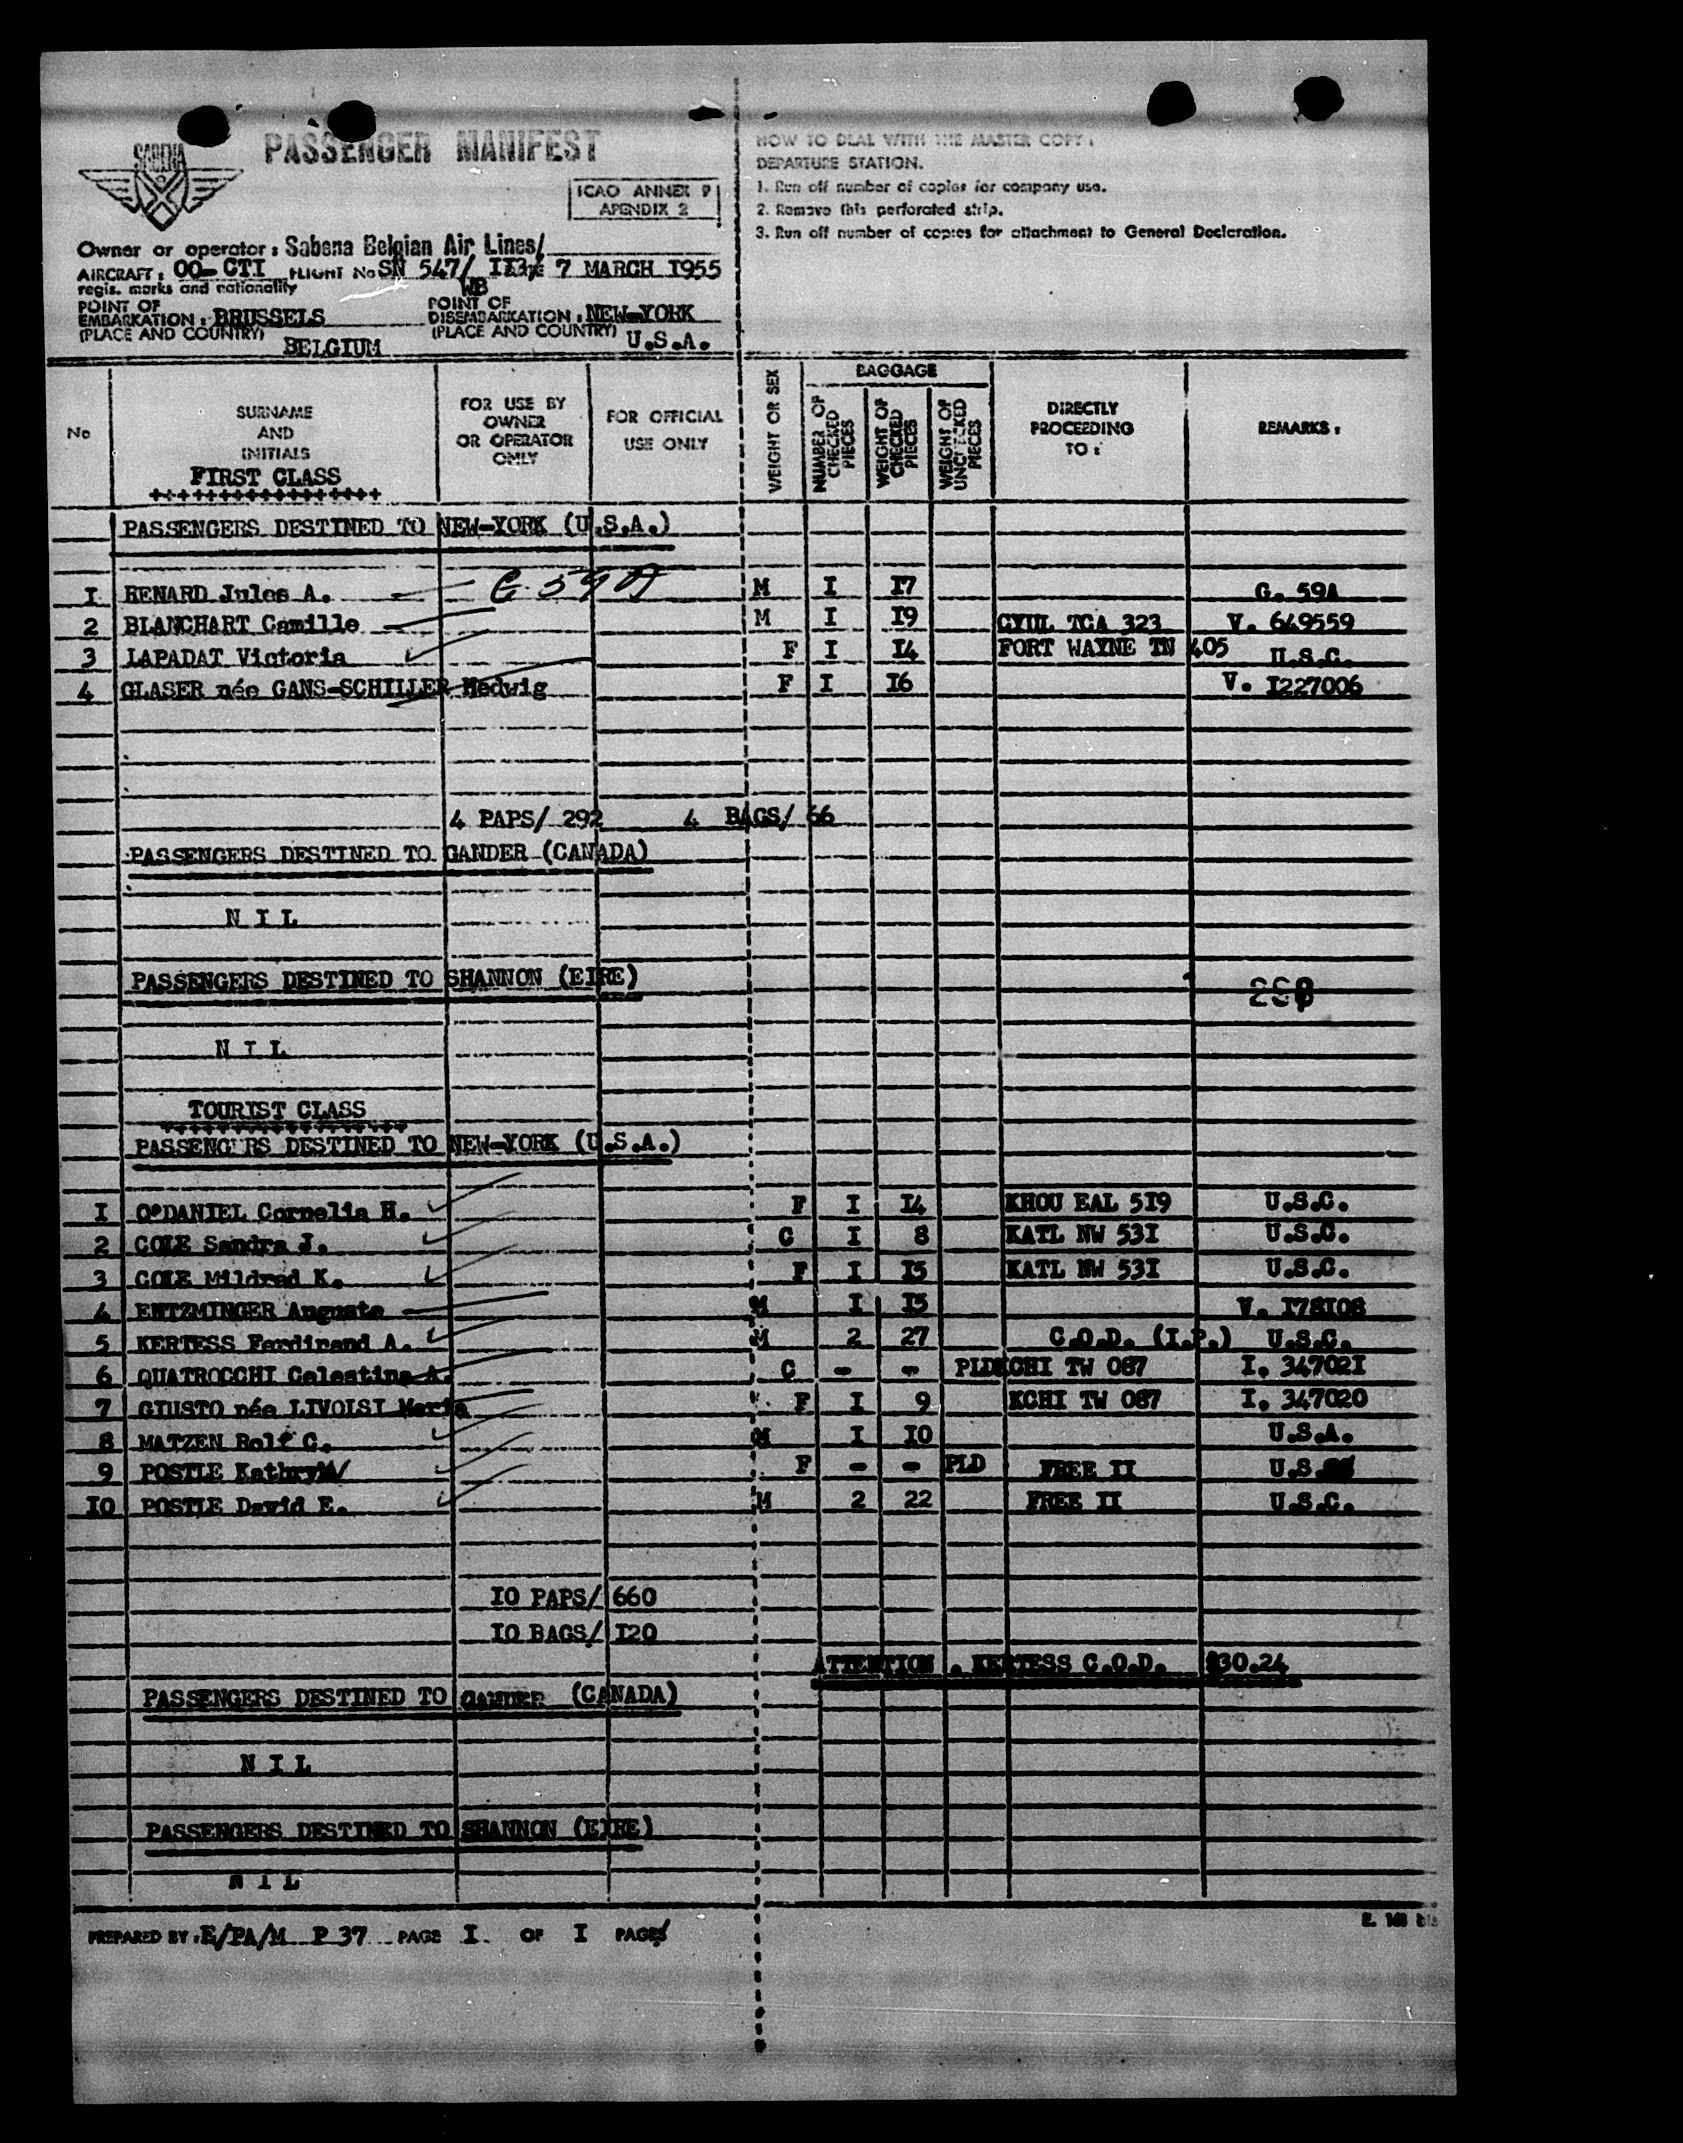 SABENA
PASSENGER MANIFEST
ICAO ANNEX 9
APENDIX 2
Owner or operator : Sabena Belgian Air Lines/
AIRCRAFT : OO-CTI FLIGHT No SN 547/ 7 MARCH I955
regis. marks and nationality WB
POINT OF EMBARKATION : BRUSSELS
(PLACE AND COUNTRY) BELGIUM
POINT OF DISEMBARKATION : NEW-YORK
(PLACE AND COUNTRY) U.S.A.
HOW TO DEAL WITH THE MASTER COPY :
DEPARTURE STATION.
1. Run off number of copies for company use.
2. Remove this perforated strip.
3. Run off number of copies for attachment to General Decleration.
No
SURNAME AND INITIALS
FIRST CLASS
++++++++++++++++
FOR USE BY OWNER OR OPERATOR ONLY
FOR OFFICIAL USE ONLY
WEIGHT OR SEX
BAGGAGE
NUMBER OF CHECKED PIECES
WEIGHT OF CHECKED PIECES
WEIGHT OF UNCHECKED PIECES
DIRECTLY PROCEEDING TO :
REMARKS :
PASSENGERS DESTINED TO NEW-YORK (U.S.A.)
I RENARD Jules A. G 59A M I I7 G. 59A
2 BLANCHART Camille M I I9 CYUL TCA 323 V. 649559
3 LAPADAT Victoria F I I4 FORT WAYNE TN 405 U.S.C.
4 GLASER née GANS-SCHILLER Hedwig F I I6 V. I227006
4 PAPS/ 292 4 BAGS/ 66
PASSENGERS DESTINED TO GANDER (CANADA)
N I L
PASSENGERS DESTINED TO SHANNON (EIRE)
N I L
TOURIST CLASS
++++++++++++++++++
PASSENGERS DESTINED TO NEW-YORK (U.S.A.)
I O'DANIEL Cornelia H. F I I4 KHOU EAL 5I9 U.S.C.
2 COLE Sandra J. C I 8 KATL NW 53I U.S.C.
3 COLE Mildred K. F I I5 KATL NW 53I U.S.C.
4 ENTZMINGER Auguste M I I5 V. I78I08
5 KERTESS Ferdinand A. M 2 27 C.O.D. (I.P.) U.S.C.
6 QUATROCCHI Celestina A. C - - PLD KCHI TW 087 I. 34702I
7 GIUSTO née LIVOISI Maria F I 9 KCHI TW 087 I. 347020
8 MATZEN Rolf C. M I IO U.S.A.
9 POSTLE Kathryn F - - PLD FREE II U.S.
IO POSTLE David E. M 2 22 FREE II U.S.C.
IO PAPS/ 660
IO BAGS/ I20
ATTENTION . KERTESS C.O.D. $30.24
PASSENGERS DESTINED TO GANDER (CANADA)
N I L
PASSENGERS DESTINED TO SHANNON (EIRE)
N I L
PREPARED BY : E/PA/M P 37 PAGE I. OF I PAGES